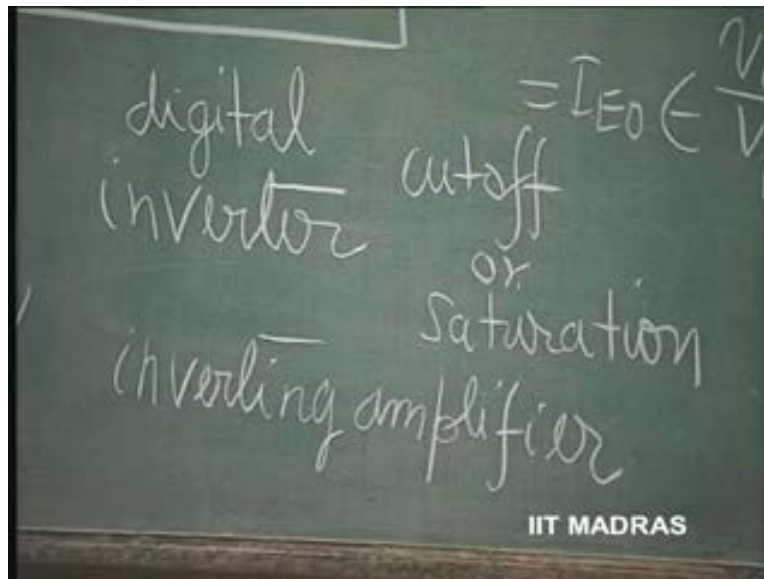 = I_E0 ∈ V
V
digital
invertor
cutoff
or
saturation
inverting amplifier
IIT MADRAS